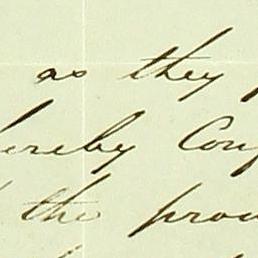 as they
hereby Conf
the prov